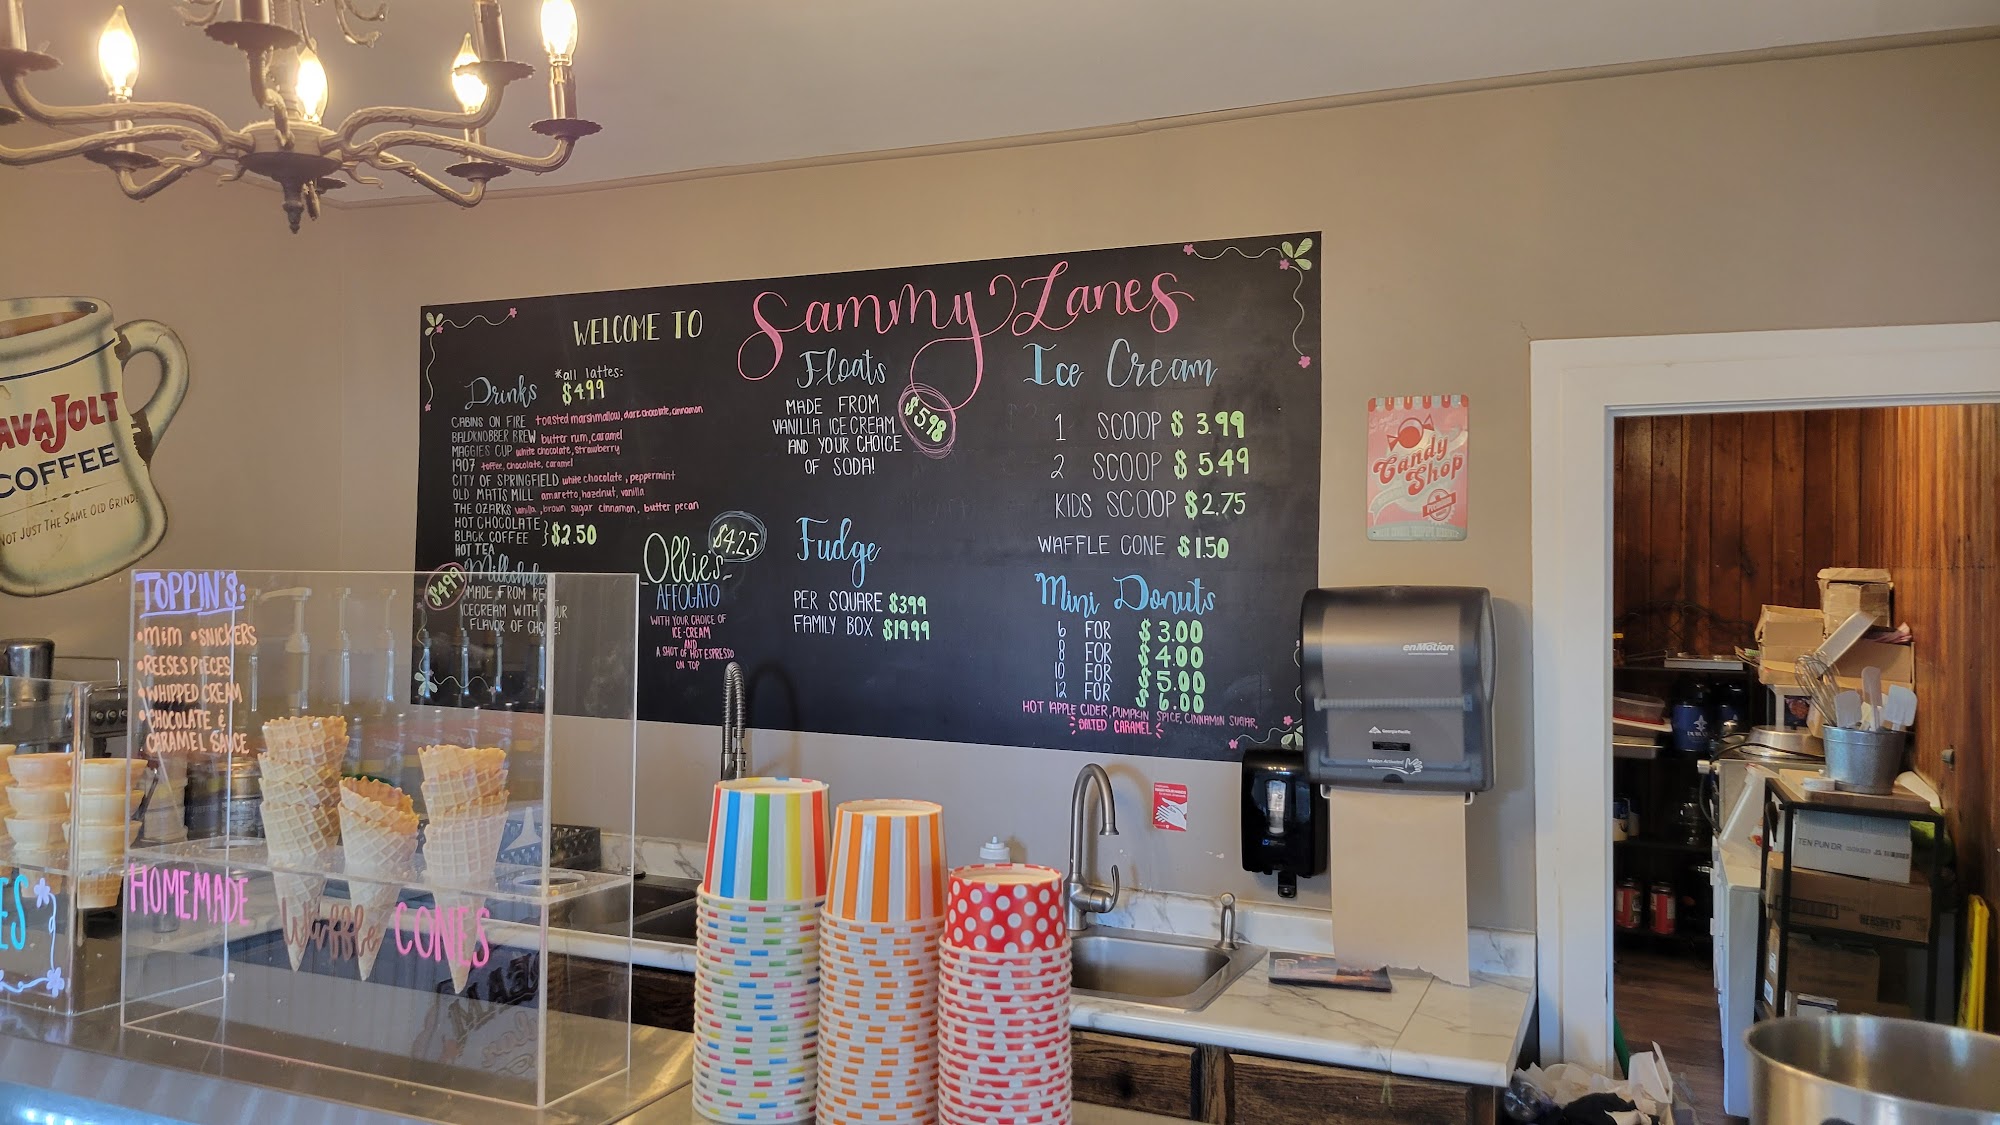 WELCOME TO Sammy Lanes
Drinks
*all lattes:
$4.99
CABINS ON FIRE toasted marshmallow, dark chocolate, cinnamon
BALDKNOBBER BREW butter rum, caramel
MAGGIES CUP white chocolate, strawberry
1907 toffee, chocolate, caramel
CITY OF SPRINGFIELD white chocolate, peppermint
OLD MATTS MILL amaretto, hazelnut, vanilla
THE OZARKS vanilla, brown sugar cinnamon, butter pecan
HOT CHOCOLATE
BLACK COFFEE } $2.50
HOT TEA
$4.99 Milkshakes
MADE FROM
ICECREAM WITH YOUR
FLAVOR OF CHOICE!
Ollie's $4.25
AFFOGATO
WITH YOUR CHOICE OF
ICE-CREAM
AND
A SHOT OF HOT ESPRESSO
ON TOP
Floats
$5.98
MADE FROM
VANILLA ICE CREAM
AND YOUR CHOICE
OF SODA!
Fudge
PER SQUARE $3.99
FAMILY BOX $19.99
Ice Cream
1 SCOOP $ 3.99
2 SCOOP $ 5.49
KIDS SCOOP $2.75
WAFFLE CONE $1.50
Mini Donuts
6 FOR $ 3.00
8 FOR $ 4.00
10 FOR $ 5.00
12 FOR $ 6.00
HOT APPLE CIDER, PUMPKIN SPICE, CINNAMON SUGAR,
SALTED CARAMEL
AVAJOLT
COFFEE
NOT JUST THE SAME OLD GRIND
TOPPIN'S:
•mim •SNICKERS
•REESES PIECES
•WHIPPED CREAM
•CHOCOLATE &
CARAMEL SAUCE
HOMEMADE Waffle CONES
ES
Candy
Shop
enMotion
Georgia-Pacific
TEN PUN DR.
HERSHEY'S